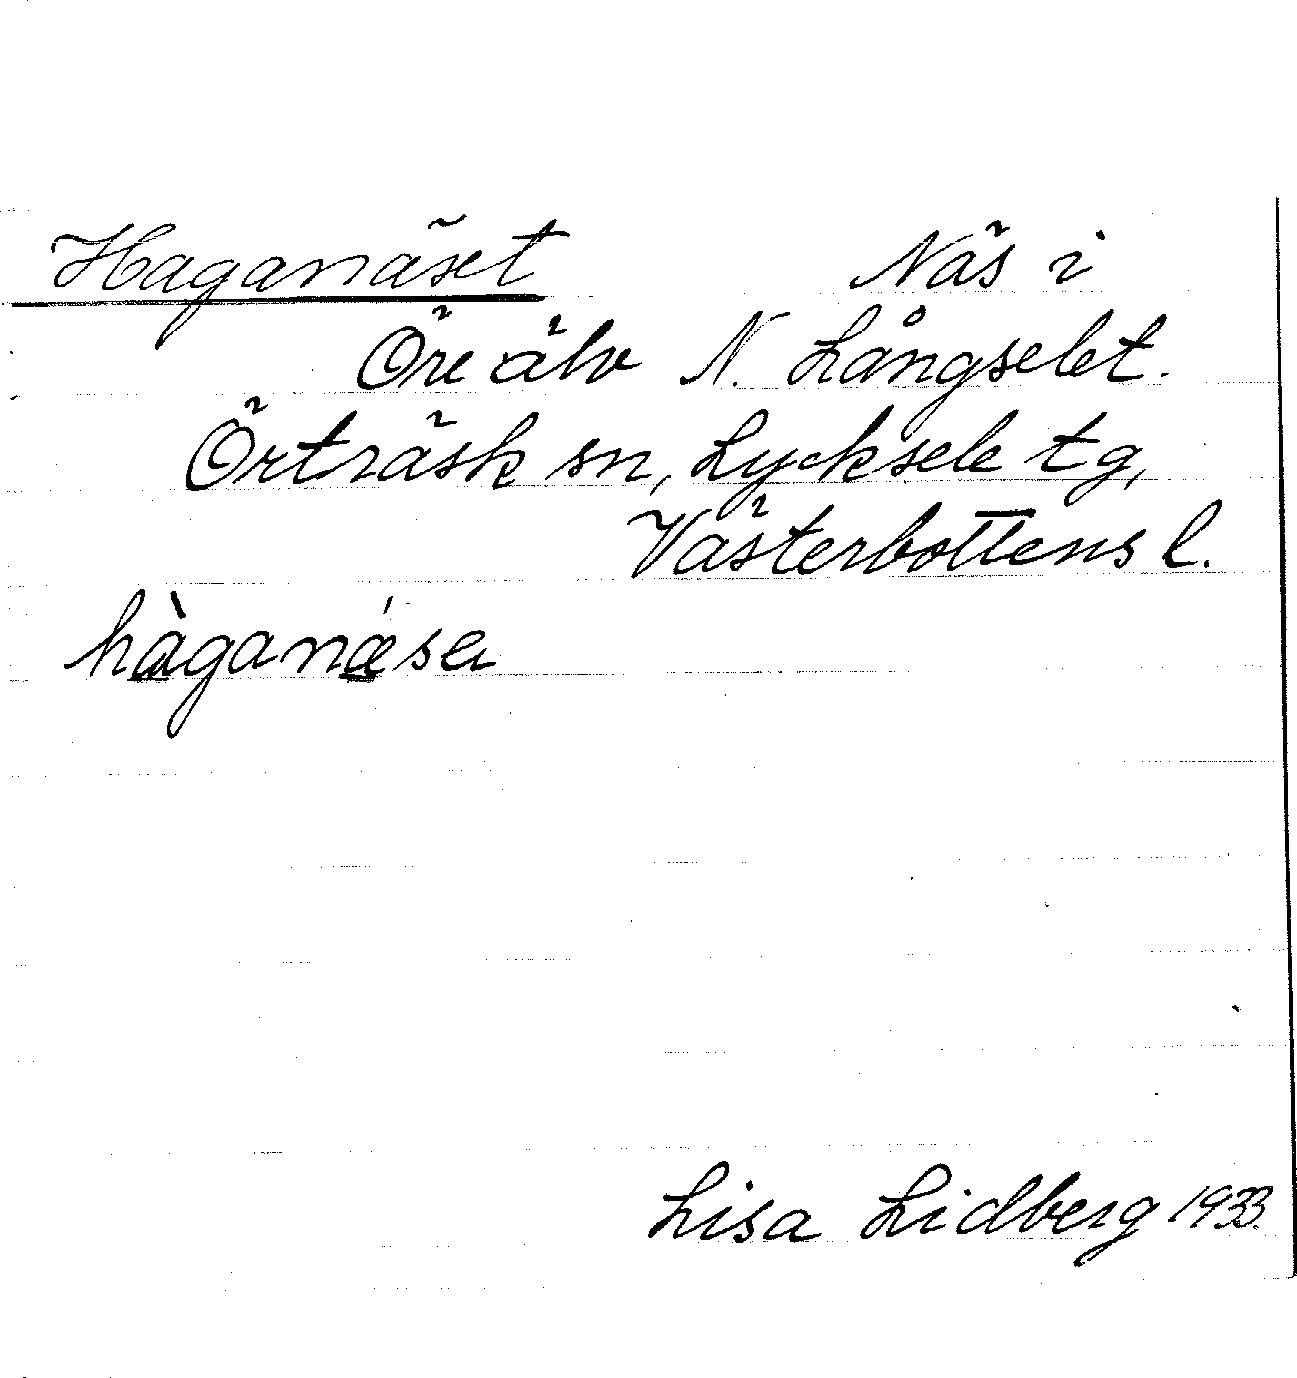 Haganäset Näs i
Öre älv N. Långselet.
Örträsk sn, Lycksele tg,
Västerbottens l.
hàganǽsa
Lisa Lidberg 1933.